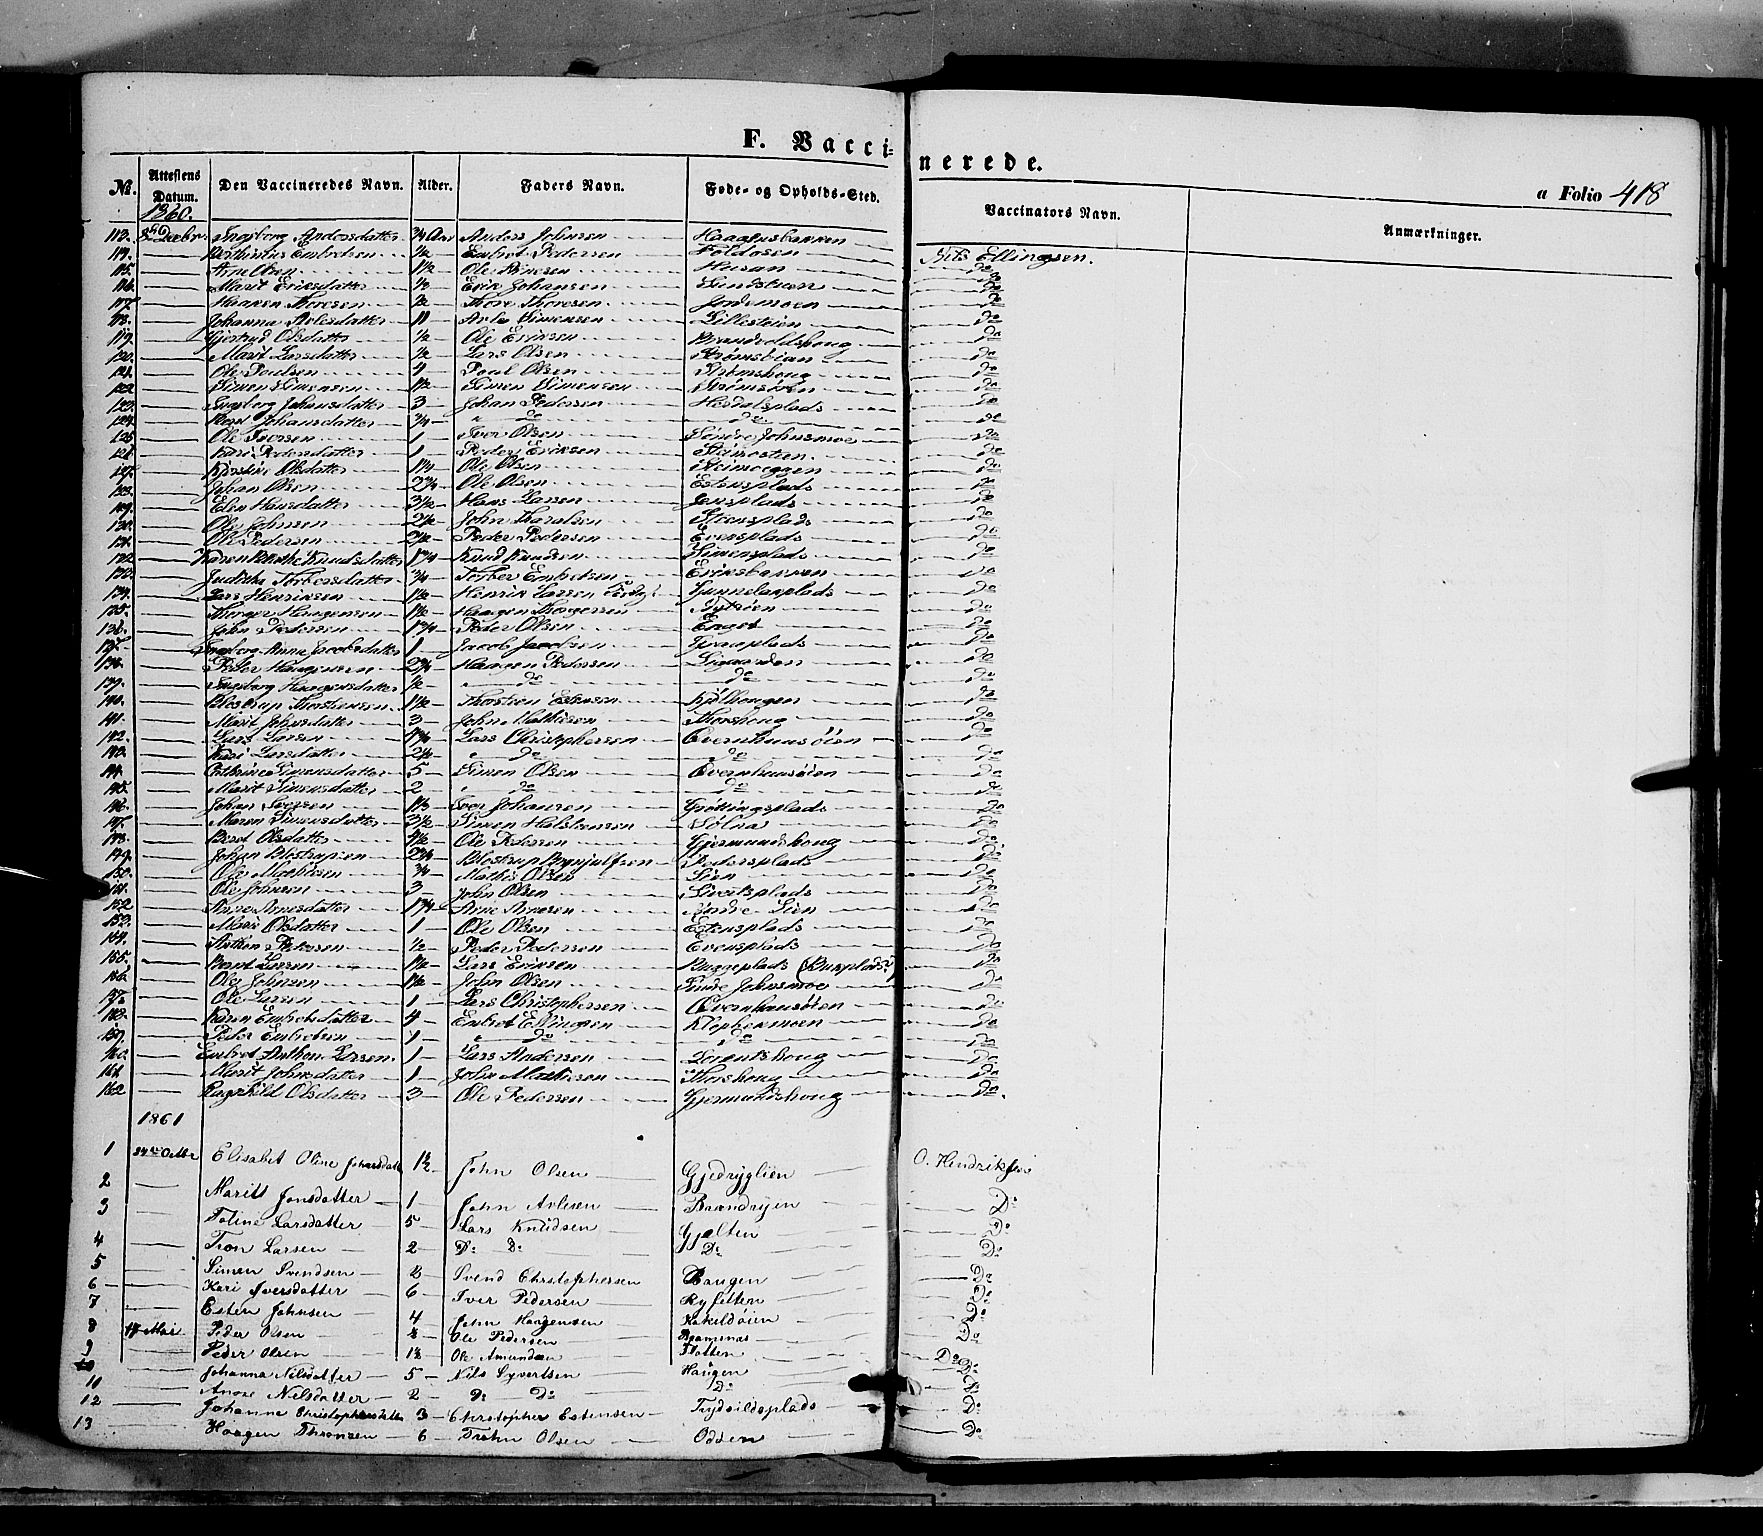 F. Vaccinerede.
a Folio 418
No. Attestens Datum. Den Vaccineredes Navn. Alder. Faders Navn. Føde- og Opholds-Sted. Vaccinators Navn. Anmærkninger.
1860.
113. Ingeborg Andersdatter 3/4 Aar Anders Johnsen Haagensbakken Nils Ellingsen.
114. Embretsen 1/2 Embret Pedersen Foldosen do
115. Arne Olsen 1 1/2 Ole Husan do
116. Marit Eriksdatter 1/2 Erik Johansen do
117. Haaken Thoresen 2 Thore Thoresen Jordemoen do
118. Johanna Arlesdatter 11 Arle Simensen Lillestøien do
119. Gjertrud Olsdatter 1/2 Ole Eriksen do
120. Marit Larsdatter 1/2 Lars Olsen do
121. Ole Paulsen 4 Poul Olsen Strømshoug do
122. Simen Simensen 1 1/2 Simen Simensen do
123. Ingeborg Johansdatter 3 Johan Pedersen Herdalsplads do
124. Berit Johansdatter 3/4 do do do
125. Ole Iversen 1 Iver Olsen Søndre Johnsmoe do
126. Kari Pedersdatter 1 Peder Eriksen do
127. Kirstine Olsdatter 1 3/4 Ole Olsen do
128. Johan Olsen 2 3/4 Ole Olsen Estensplads do
129. Elen Hansdatter 3 1/2 Hans Larsen Jensplads do
130. Ole Johnsen 2 1/2 John Haralsen Steensplads do
131. Ole Pedersen 2 1/2 Peder Pedersen Evensplads do
132. Karen Knudsdatter 1 3/4 Knud Knudsen Simensplads do
133. Judithe Torbersdatter 3/4 Torber Embretsen Eriksbakken do
134. Lars Henriksen 1 1/2 Henrik Larsen Gunnelausplads do
135. Thorger Haagensen 1 1/2 Haagen Thorgersen Nytrøen do
136. John Pedersen 1 3/4 Peder Olsen Enget do
137. Ingeborg Anna Jacobsdatter 1 Jacob Jacobsen do
138. Peder Haagensen 2 3/4 Haagen Pedersen do
139. Ingeborg Haagensdatter 1/2 do do do
140. Blestrup Thorstensen 1 1/2 Thorsten Estensen Kjølhougen do
141. Marit Johnsdatter 3 John Mathisen Thorshoug do
142. Lars Larsen 1 3/4 Lars Christophersen Qvernhuusøien do
143. Kari Larsdatter 2 1/2 do do do
144. Cathrine Simensdatter 5 Simen Olsen Qvernhuusøien do
145. Marit Simensdatter 2 do do do
146. Johan Iversen 1 1/3 Iver Johansen Grøttingsplads do
147. Maren Simensdatter 3 1/2 Simen Halstensen Sølna do
148. Berit Olsdatter 4 1/2 Ole Pedersen Gjermundshoug do
149. Johan Blestrupsen 2 3/4 Blestrup Brynjulfsen Pedersplads do
150. Ole Mathisen 3/4 Mathis Olsen Lien do
151. Ole Johnsen 3 John Olsen Sivertsplads do
152 Anne Arnesdatter 1 3/4 Arne Arnesen Nordre Lien do
153. Marie Olsdatter 1 Ole Olsen Estensplads do
154. Anthon Pedersen 1/2 Peder Pedersen Evensplads do
155. Bernt Larsen 1 1/2 Lars Eriksen Buggeplads (Buxplads?) do
156. Ole Johnsen 1 1/2 John Olsen Søndre Johnsmoe do
157. Ole Larsen 1 Lars Christophersen Qvernhuusøien do
158. Karen Embretsdatter 4 Embret Ellingsen Klophermoen do
159. Peder Embretsen 1 do do do
160. Embret Anthon Larsen 1 Lars Andersen Lorentshoug do
161. Marit Johnsdatter 1 John Mathisen Thorshoug do
162 Ragnhild Olsdatter 3 Ole Pedersen Gjermundshoug do.
1861
1 24de Octbr Elisabet Oline Johnsdatt 1 1/2 John Olsen Gjedryglien O. Hendriksen
2 Maritt Jonsdatter 1 John Arlesen Brændryen Do
3 Toline Larsdatter 5 Lars Knudsen Gjelten Do
4 Tron Larsen 2 Do Do Do Do
5 Simen Svendsen 2 Svend Chrstophersen Baugen Do
6 Kari Iversdatter 6 Iver Pedersen Ryfetten Do
7 Esten Johnsen 4 John Haagensen Kakildøien Do
8 17 Mai Peder Olsen 2 Ole Pedersen Bramsnas Do
9 Peder Olsen 1 1/2 Ole Amundsen Flatten Do
10 Johanna Nilsdatter 5 Nils Syvertsen Haugen Do
11 Anne Nilsdatter 2 Do Do Do Do
12 Johanne Christophersdatter 3 Chrstopher Estensen Trydsildsplads Do
13 Haagen Thronsen 6 Trohn Olsen Odden Do